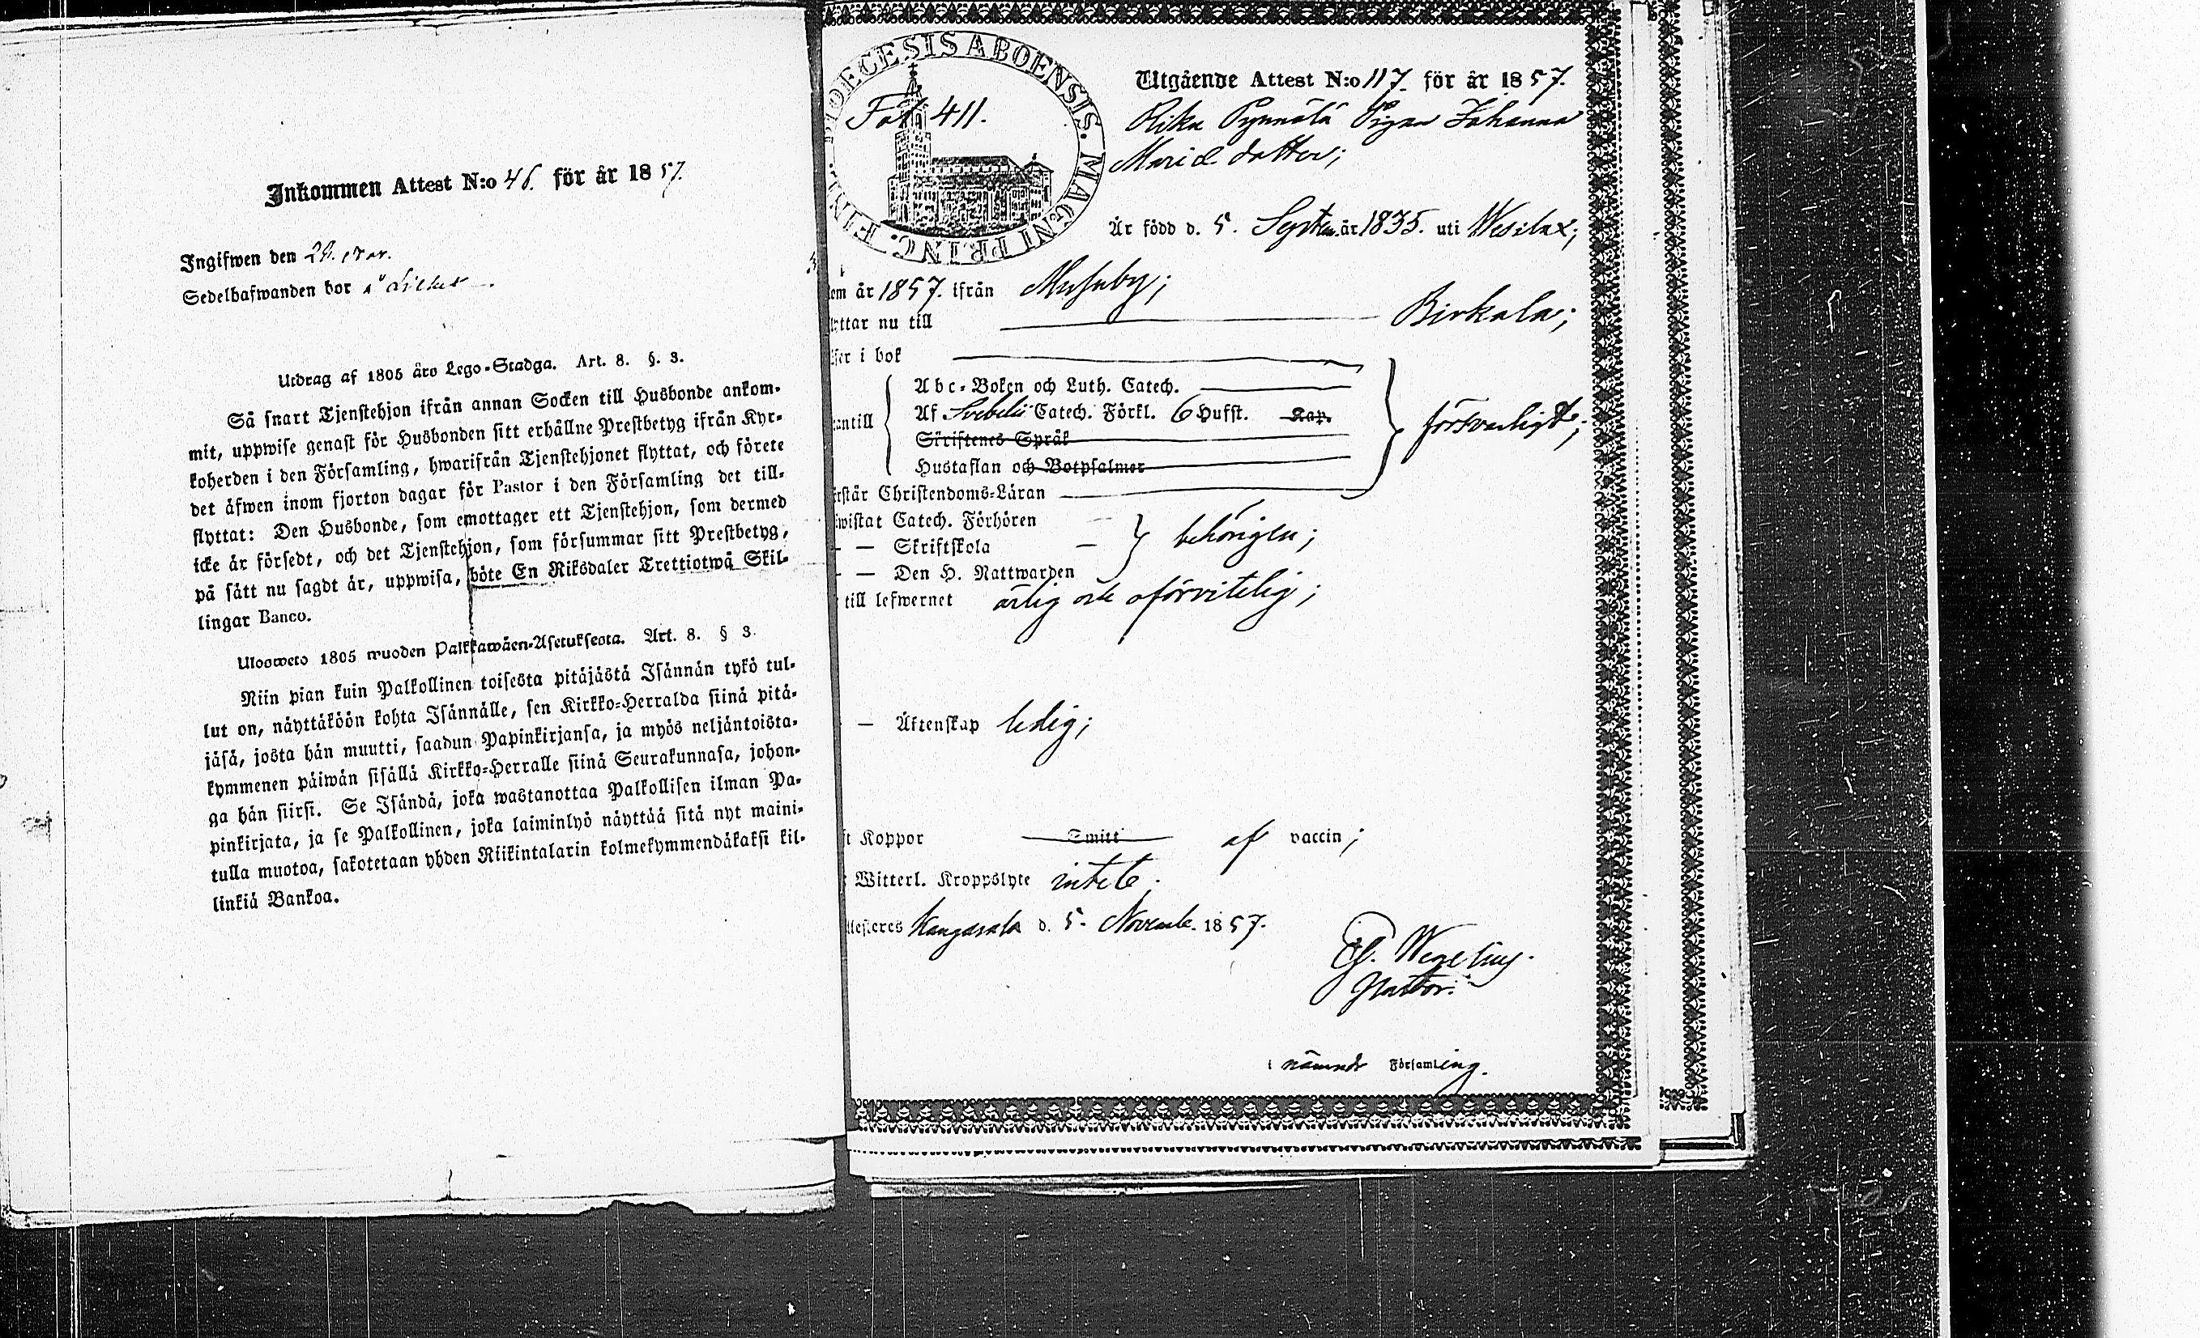 Inkommen Attest N:o 46. för år 1857.
Ingifwen den
Sedelhafwanden bor
Utdrag af 1805 års Lego-Stadga. Art. 8. §. 3.
Så snart Tjenstehjon ifrån annan Socken till Husbonde ankom-
mit, uppwise genast för Husbonden sitt erhållne Prestbetyg ifrån Kyr-
koherden i den Församling, hwarifrån Tjenstehjonet flyttat, och förete
det åfwen inom fjorton dagar för Pastor i den Församling det till-
flyttat: Den Husbonde, som emottager ett Tjenstehjon, som dermed
icke är försedt, och det Tjenstehjon, som försummar sitt Prestbetyg,
på sätt nu sagdt är, uppwisa, böte En Riksdaler Trettiotwå Skil-
lingar Banco.
Ulosweto 1805 wuoden Palkkawäen-Asetuksesta. Art. 8. § 3.
Niin pian kuin Palkollinen toisesta pitäjästä Isännän tykö tul-
lut on, näyttäköön kohta Isännälle, sen Kirkko-Herralda siinä pitä-
jäsä, josta hän muutti, saadun Papinkirjansa, ja myös neljäntoista-
kymmenen päiwän sisällä Kirkko-Herralle siinä Seurakunnasa, johon-
ga hän siirsi. Se Isändä, joka wastanottaa Palkollisen ilman Pa-
pinkirjata, ja se Palkollinen, joka laiminlyö näyttää sitä nyt maini-
tulla muotoa, sakotetaan yhden Riikintalarin kolmekymmendäkaksi kil-
linkiä Bankoa.
DIOECESIS ABOENSIS. MAGNI PRINC. FINL.
Fol. 411.
Utgående Attest N:o 117. för år 1857.
Pigan Johanna
dotter;
Är född d. 5. Septem. år 1835. uti Wesilax;
om år 1857. ifrån
yttar nu till Birkala;
ser i bok
antill
Abc-Boken och Luth. Catech.
Af Svebelii Catech. Förkl. 6 Hufst. Kap.
Skriftenes Språk
Hustaflan och Botpsalmer
försvarligt;
rstår Christendoms-Läran
wistat Catech. Förhören
— — Skriftskola — behörigen;
— — Den H. Nattwarden
till lefwernet ärlig och oförvitelig;
— Äktenskap ledig;
t Koppor Smitt af vaccin;
Witterl. Kroppslyte intet.
ttesteres Kangasala d. 5. Novemb. 1857.
Wegelius.
Pastor.
i nämnde Församling.